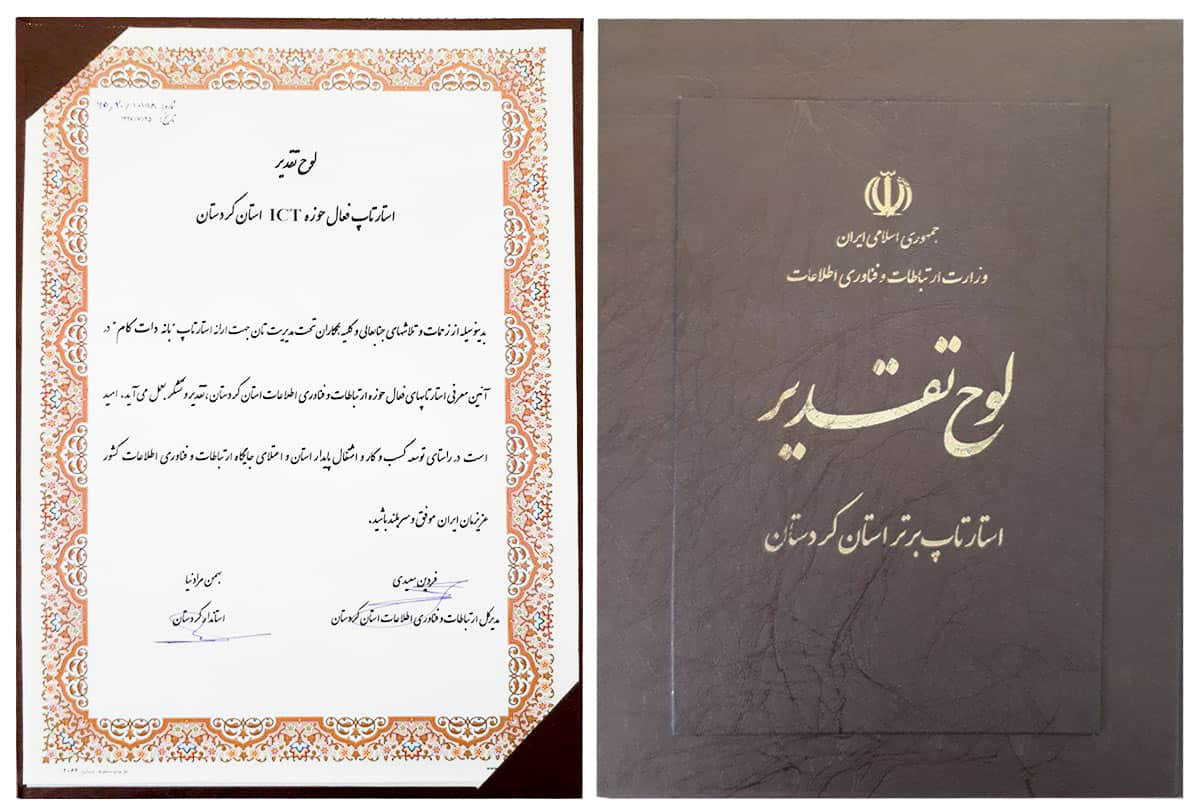 شماره:
تاریخ:
لوح تقدیر
استارتاپ فعال حوزه ICT استان کردستان
بدینوسیله از زحمات و تلاشهای جنابعالی و کلیه همکاران تحت مدیریت تان جهت ارائه استارتاپ "بانه دات کام" در
آئین معرفی استارتاپهای فعال حوزه ارتباطات و فناوری اطلاعات استان کردستان، تقدیر و تشکر بعمل می آید. امید
است در راستای توسعه کسب و کار و اشتغال پایدار استان و اعتلای جایگاه ارتباطات و فناوری اطلاعات کشور
عزیزمان ایران موفق و سربلند باشید.
فردین سعیدی
مدیرکل ارتباطات و فناوری اطلاعات استان کردستان
بهمن مرادنیا
استاندار کردستان
جمهوری اسلامی ایران
وزارت ارتباطات و فناوری اطلاعات
لوح تقدیر
استارتاپ برتر استان کردستان